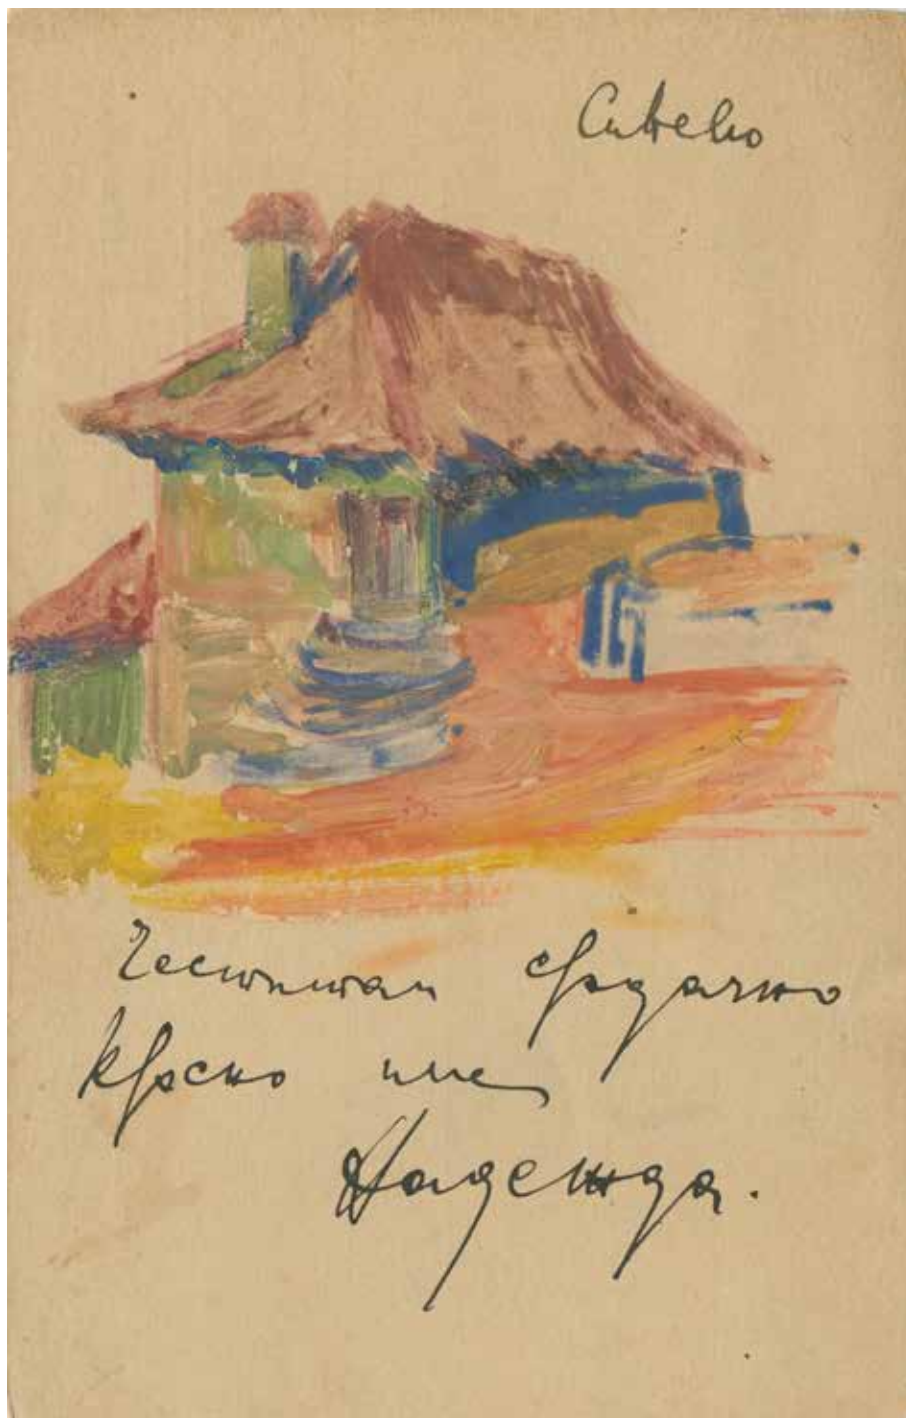 Сићево
Честитам срдачно
Крсно име
Надежда.